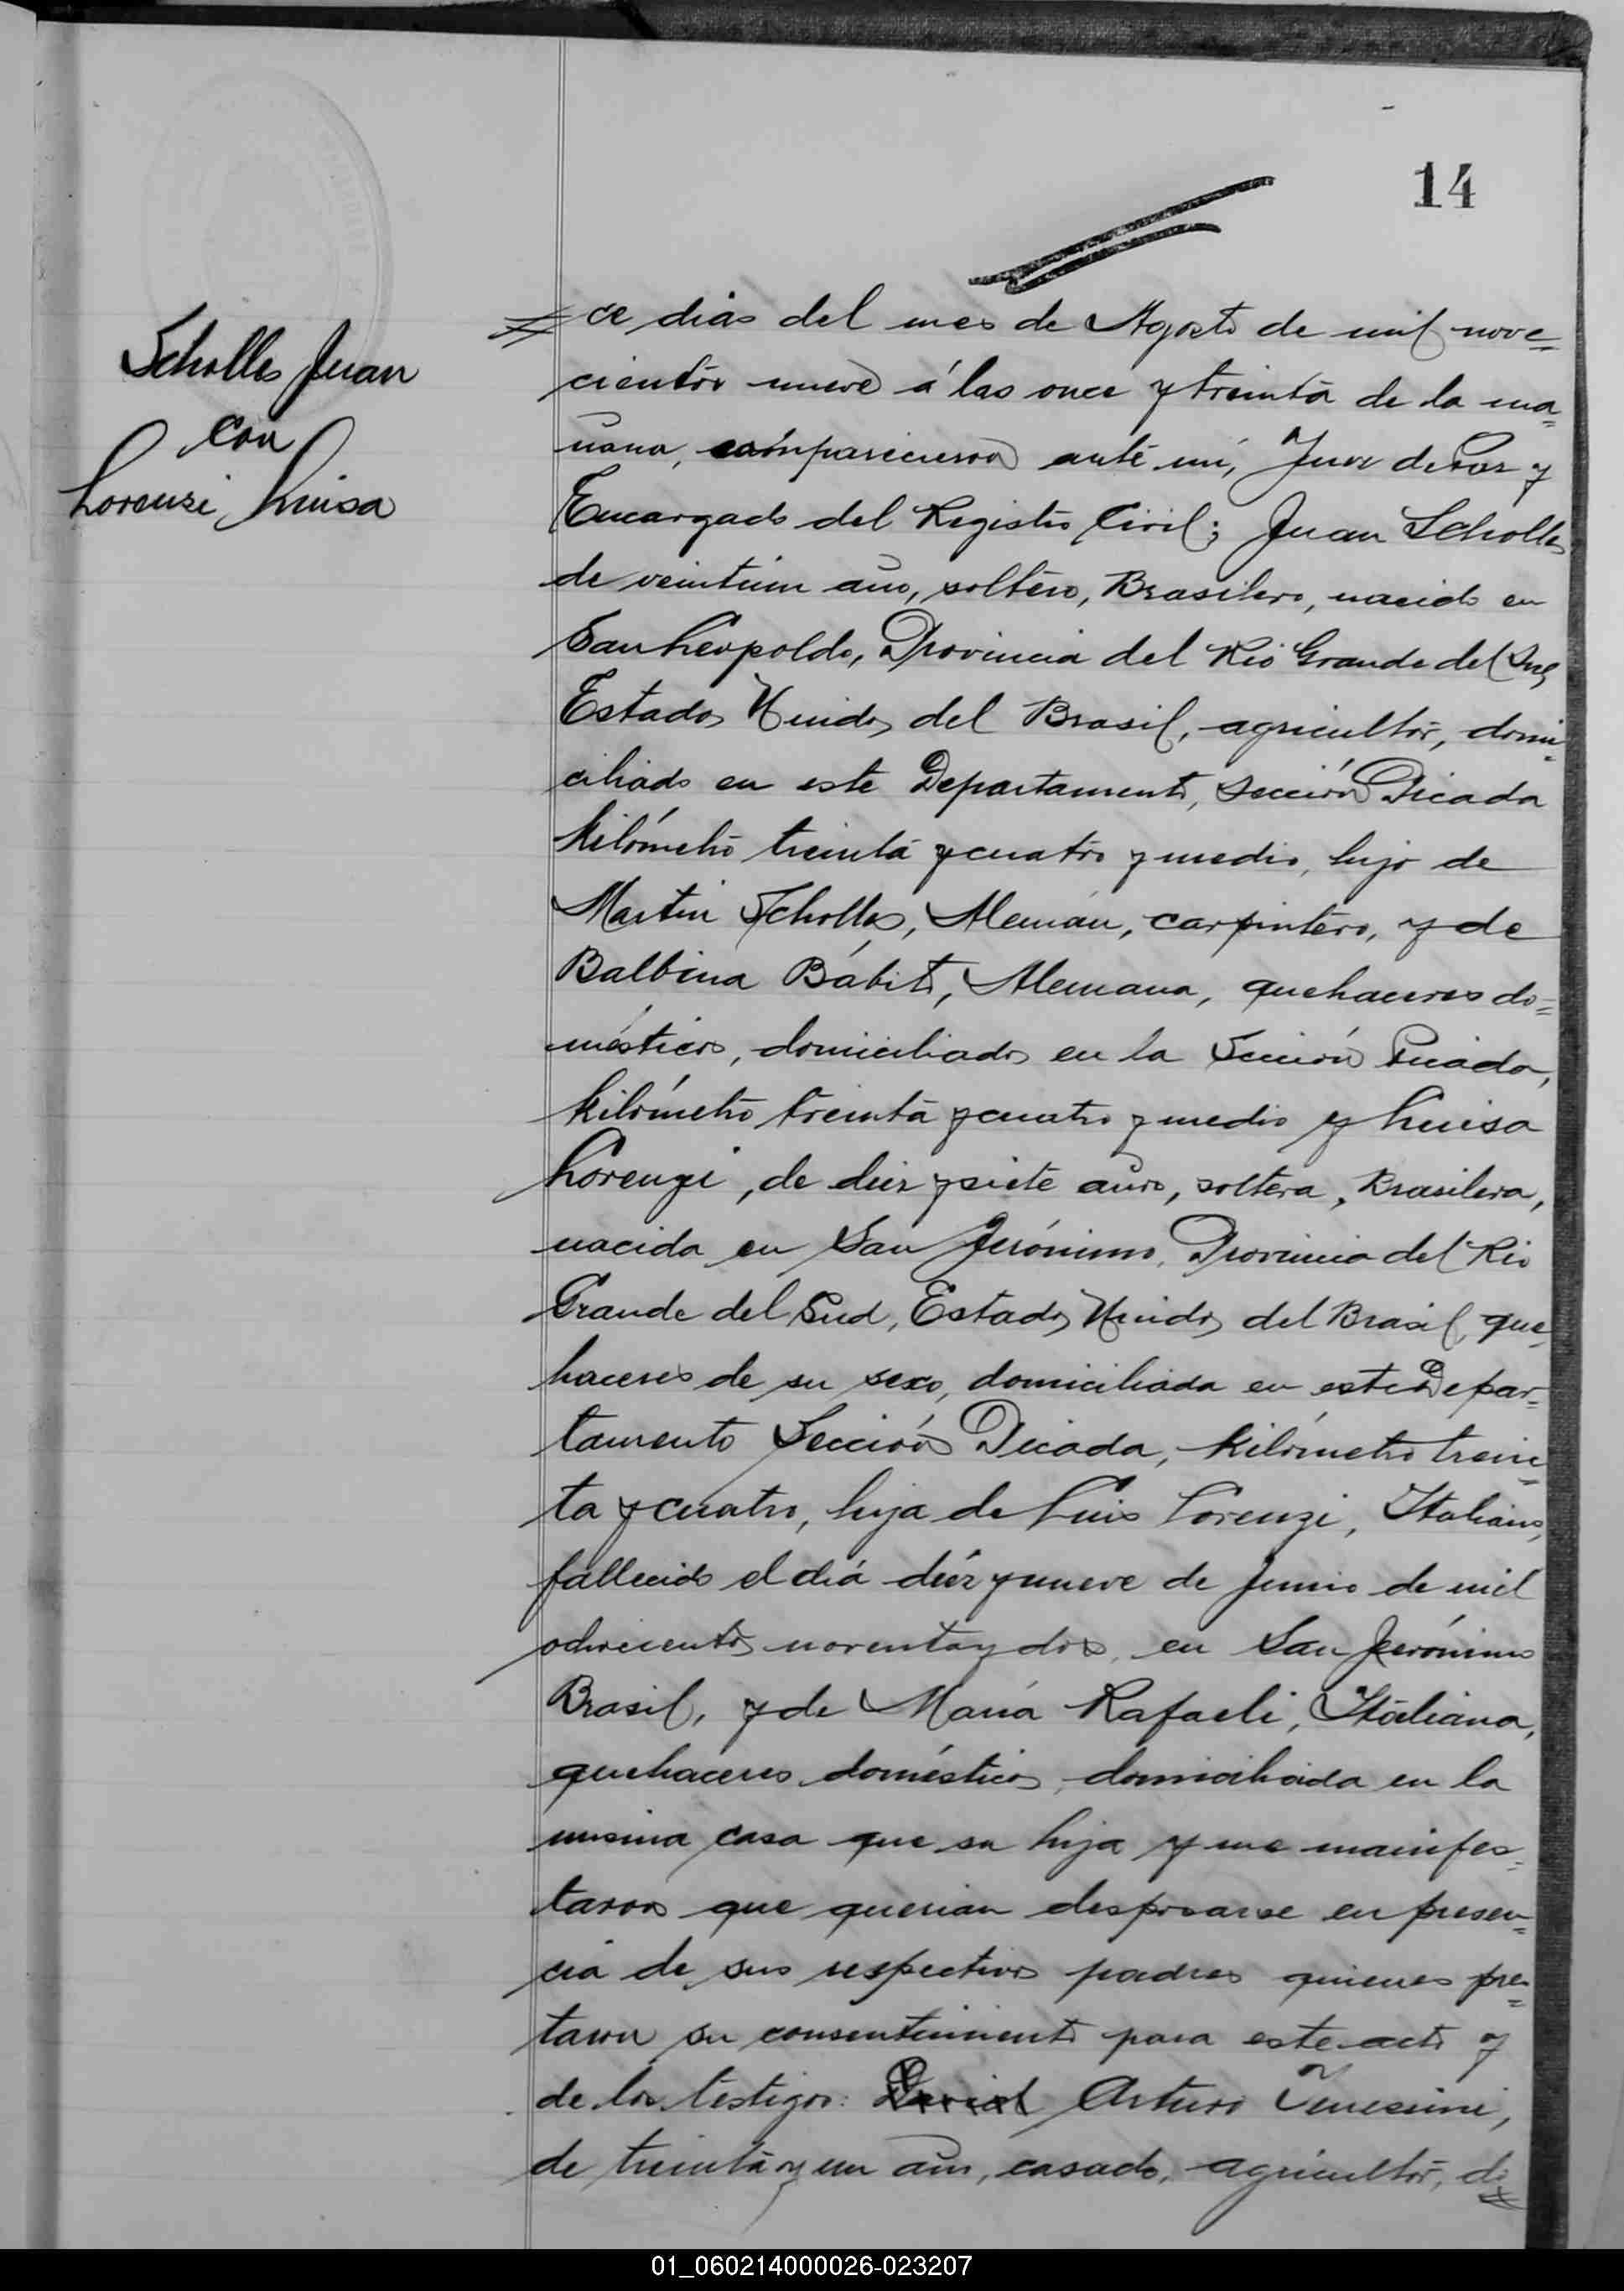 14
Scholles Juan
con
Lorenzi Luisa
ce dias del mes de Agosto de mil nove=
cientos nueve á las once y treinta de la ma=
ñana, comparecieron ante mi, Juez de Paz y
Encargado del Registro Civil; Juan Scholles
de veintiun año, soltero, Brasilero, nacido en
San Leopoldo, Provincia del Rio Grande del Sud,
Estados Unidos del Brasil, agricultor, domi=
ciliado en este Departamento, Sección Picada
kilómetro treinta y cuatro y medio, hijo de
Martin Scholles, Alemán, carpintero, y de
Balbina Bábit, Alemana, quehaceres do=
mésticos, domiciliados en la Sección Picada,
kilómetro treinta y cuatro y medio y Luisa
Lorenzi, de diez y siete años, soltera, Brasilera,
nacida en San Jerónimo, Provincia del Rio
Grande del Sud, Estados Unidos del Brasil, que=
haceres de su sexo, domiciliada en este Depar=
tamento Sección Picada, kilómetro trein=
ta y cuatro, hija de Luis Lorenzi, Italiano,
fallecido el dia diez y nueve de Junio de mil
ochocientos noventa y dos, en San Jerónimo
Brasil, y de Maria Rafaeli, Italiana,
quehaceres domésticos, domiciliada en la
misma casa que su hija y me manifes=
taron que querian desposarse en presen=
cia de sus respectivos padres quienes pres=
taron su consentimiento para este acto y
de los testigos: Arturo
de treinta y un año, casado, agricultor, do
01_060214000026-023207